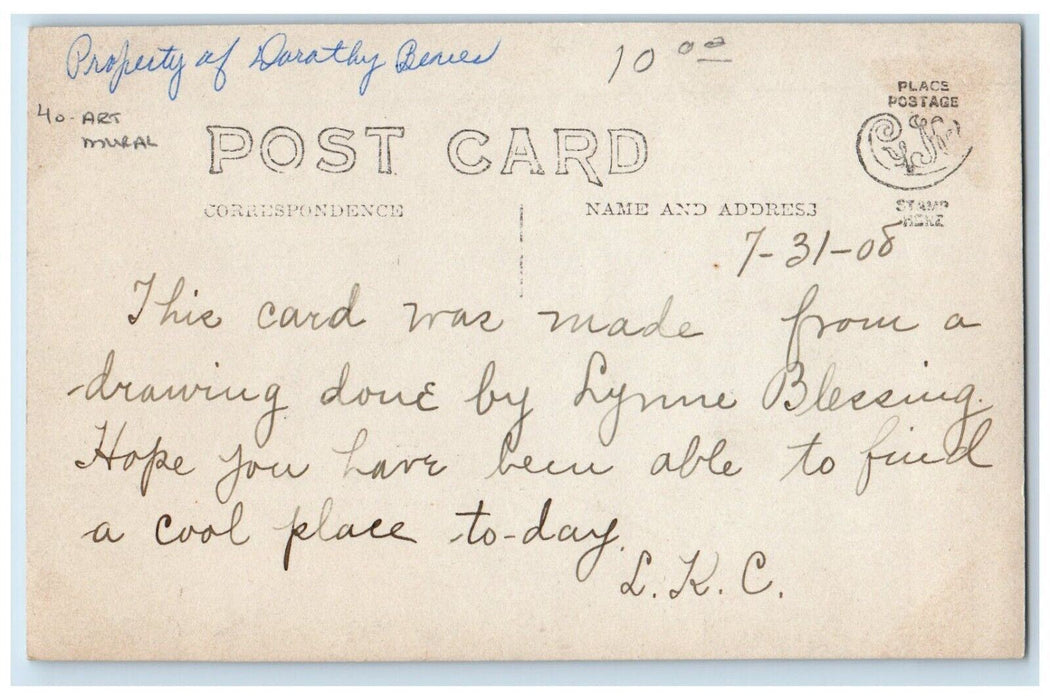 Property of Dorathy Benes
10 00
40- ART
MURAL
PLACE
POSTAGE
POST CARD
STAMP
HERE
CORRESPONDENCE
NAME AND ADDRESS
7-31-08
This card was made from a
drawing done by Lynne Blessing.
Hope you have been able to find
a cool place to-day.
L. K. C.